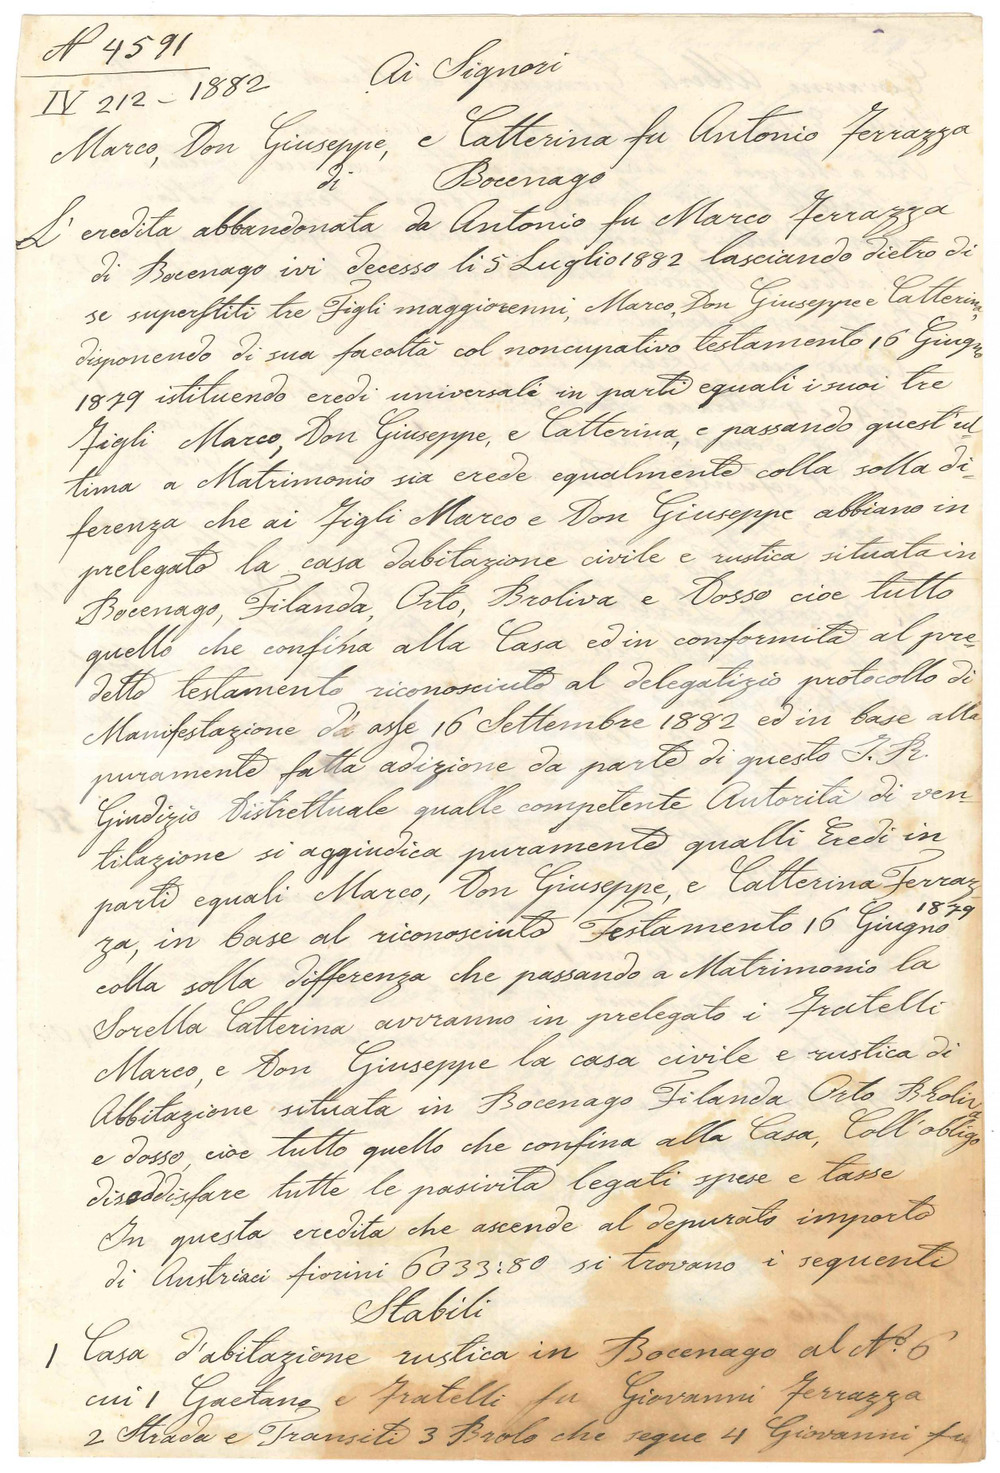 N 4591
IV 212 - 1882
Ai Signori
Marco, Don Giuseppe, e Catterina fu Antonio Ferrazza
di Bocenago
L' eredita abbandonata da Antonio fu Marco Ferrazza
di Bocenago ivi decesso li 5 Luglio 1882 lasciando dietro di
se superstiti tre Figli maggiorenni, Marco, Don Giuseppe e Catterina,
disponendo di sua facoltà col noncupativo testamento 16 Giugno
1879 istituendo eredi universali in parti eguali i suoi tre
Figli Marco, Don Giuseppe, e Catterina, e passando quest'ul-
tima a Matrimonio sia erede egualmente colla solla di-
ferenza che ai Figli Marco e Don Giuseppe abbiano in
prelegato la casa dabitazione civile e rustica situata in
Bocenago, Filanda, Orto, Broliva e Dosso cioe tutto
quello che confina alla Casa ed in conformità al pre-
detto testamento riconosciuto al delegatizio protocollo di
Manifestazione d'asse 16 Settembre 1882 ed in base alla
puramente fatta adizione da parte di questo I. R.
Giudizio Distrettuale qualle competente Autorità di ven-
tilazione si aggiudica puramente qualli Eredi in
parti eguali Marco, Don Giuseppe, e Catterina Ferraz-
za, in base al riconosciuto Testamento 16 Giugno 1879
colla solla differenza che passando a Matrimonio la
Sorella Catterina avvranno in prelegato i Fratelli
Marco, e Don Giuseppe la casa civile e rustica di
Abbitazione situata in Bocenago Filanda Orto Broliva
e dosso, cioe tutto quello che confina alla Casa, Coll'obligo
disoddisfare tutte le pasività legati spese e tasse
In questa eredita che ascende al depurato importo
di Austriaci fiorini 6033:80 si trovano i seguenti
Stabili
1 Casa d'abitazione rustica in Bocenago al N.o 6
cui 1 Gaetano e Fratelli fu Giovanni Ferrazza
2 Strada e Transiti 3 Brolo che segue 4 Giovanni fu